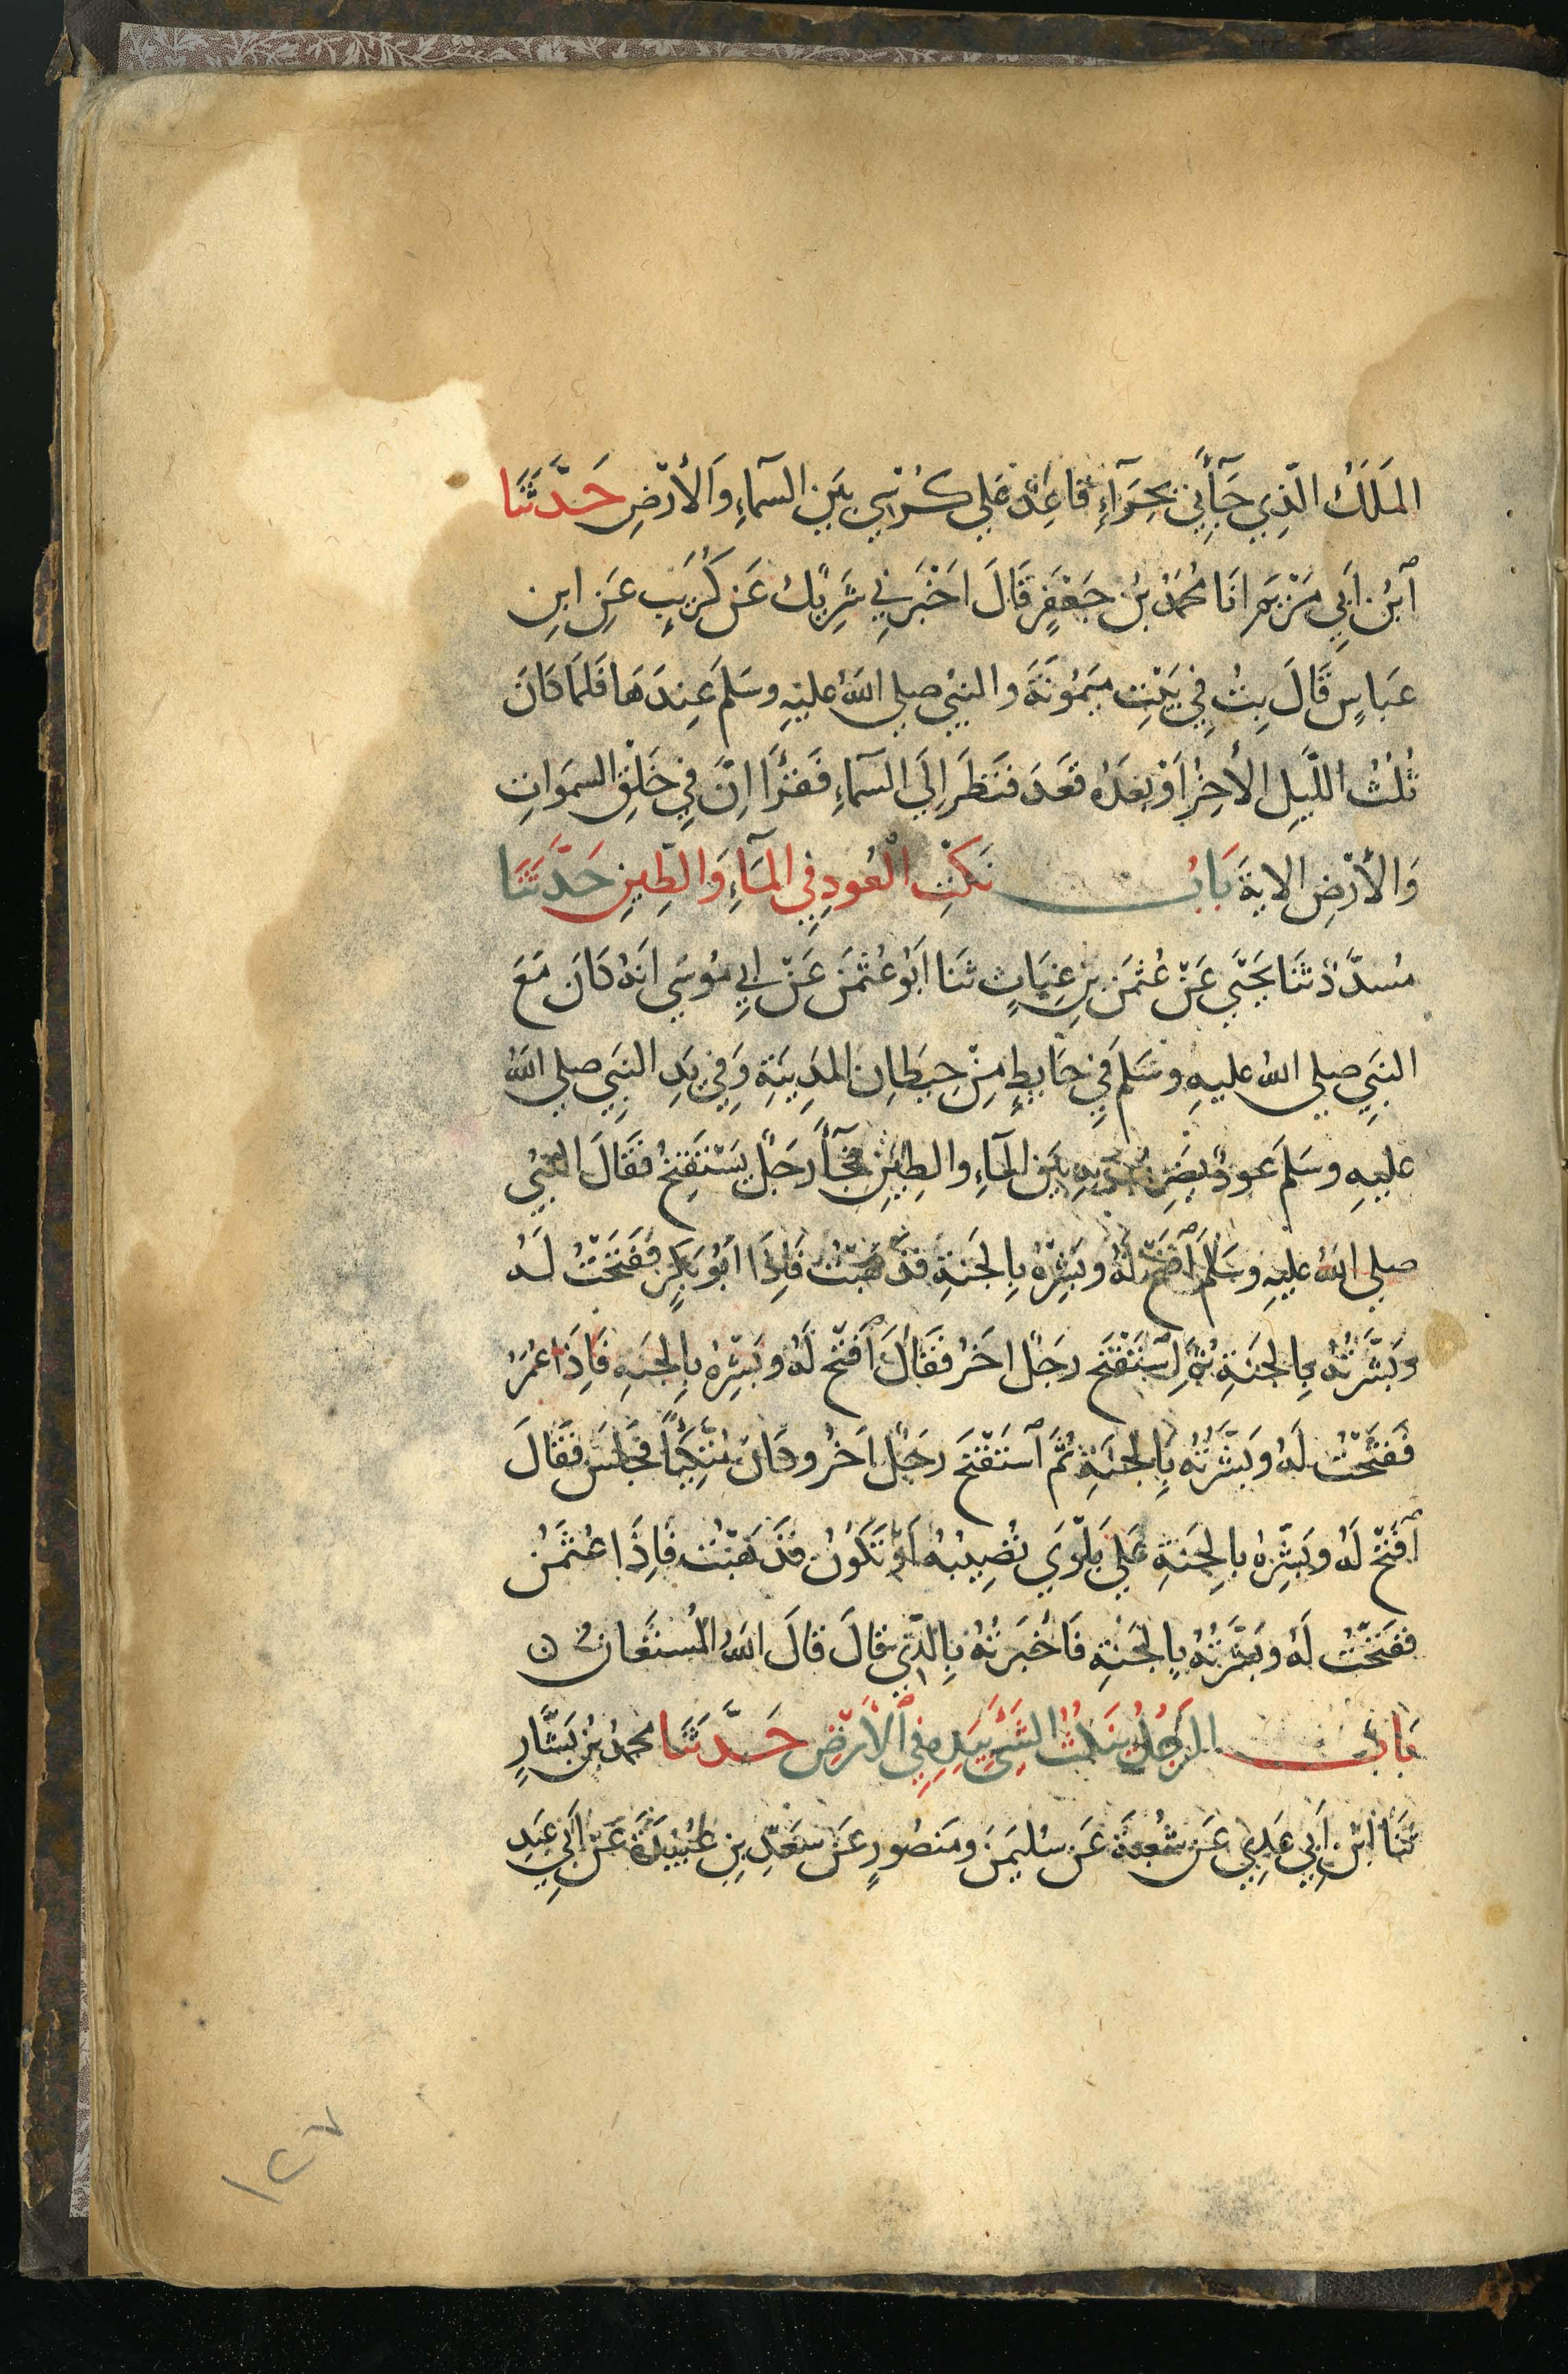 المَلَكُ الَّذِي جَآءَنِي بِحِرَآءٍ قَاعِدٌ عَلي كُرْسِيٍ بَيَن السَّمآءِ وَالأَرْضِ حَدَّثَنَا
ٱبْنُ اَبِي مَرْيَمَ انَا مُحَمَّدُ بْنُ جَعْفَرٍ قَالَ اَخْبَرَنِي شَرِيْكٌ عَن كُرَيْبٍ عَنِ ابنِ
عَبَاسٍ قَالَ بِتُّ فِي بَيْتِ مَيْمُونَةَ والنبيُ صلي اللهُ عليْهِ وسَلمَ عِندَهَا فَلمَا كَانَ
ثُلُثُ اللَّيلِ الأَخِرُ اَوْ بَعْدَهُ قَعَدَ فَنَظَرَ اِلَي السَّمآءِ فَقَرَأَ اِنَّ فِي خَلْقِ السمَواتِ
وَالأَرْضِ الاية بَابُ نَكْتِ الْعُودِ فِي المَآءِ وَالطِّينِ حَدَّثَنَا
مُسدَّدٌ ثَنَا يَحْيَى عَنْ عُثمَنَ بنِ غِيَاثٍ ثنَا اَبُو عُثمَنَ عَنْ اَبِي مُوسَي اَنهُ كَانَ مَعَ
النبَيِ صلي اللهُ عليهِ وسَلَم فِي حَايِطٍ مِنْ حِيطَانِ المَدِينَةِ وَفِي يَدِ النبَيِ صلي اللهُ
عليهِ وسَلَم عودٌ يَضرِبُ بِهِ بَين المَآءِ والطِينِ فَجَآءَ رَجلٌ يَسْتَفْتِحُ فَقَالَ النبيُ
صلي اللهُ عليهِ وَسَلَمَ ٱفْتَحْ لَهُ وبَشِّرْهُ بِالجَنةِ فَذَهَبْتُ فَاِذَا اَبُو بَكرٍ فَفَتَحْتُ لَهُ
وبَشَّرْتُهُ بِالجنَةِ ثُمَّ اسْتَفْتَحَ رجَلٌ اخَرُ فَقَالَ ٱفْتَحْ لَهُ وبَشِّرْهُ بِالجنَةِ فَاِذَا عُمَرُ
فَفَتَحْتُ لَهُ وبَشَّرْتُهُ بِالجنَةِ ثُمَّ ٱسْتَفْتَحَ رجَلٌ اخَرُ وكَانَ مُتَّكِئًا فَجَلسَ فَقَالَ
ٱفْتَحْ لَهُ وبَشِّرْهُ بالجنَةِ عَلي بَلْوَي تُصِيبُهُ اَوْ تَكُونُ فَذَهَبْتُ فَاِذَا عُثمَنُ
ففَتَحْتُ لَهُ وبَشَّرْتُهُ بِالجَنةِ فَاَخْبَرْتُهُ بِالَّذِي قَالَ قَالَ اللهُ المُستَعَانُ ن
بَابُ الرَجُلِ يَنكُتُ الشَيْءَ بِيَدِهِ فِي ٱلأَرْضِ حَدَّثَنَا محمدُ بْنُ بَشَّارٍ
ثنَا ابْنُ اَبِي عَدِيٍ عَن شُعبَةَ عَن سُليمَنَ ومَنصُورٍ عَن سَعْدِ بنِ عُبَيْدَةَ عَن اَبِي عَبدِ
١٢٧